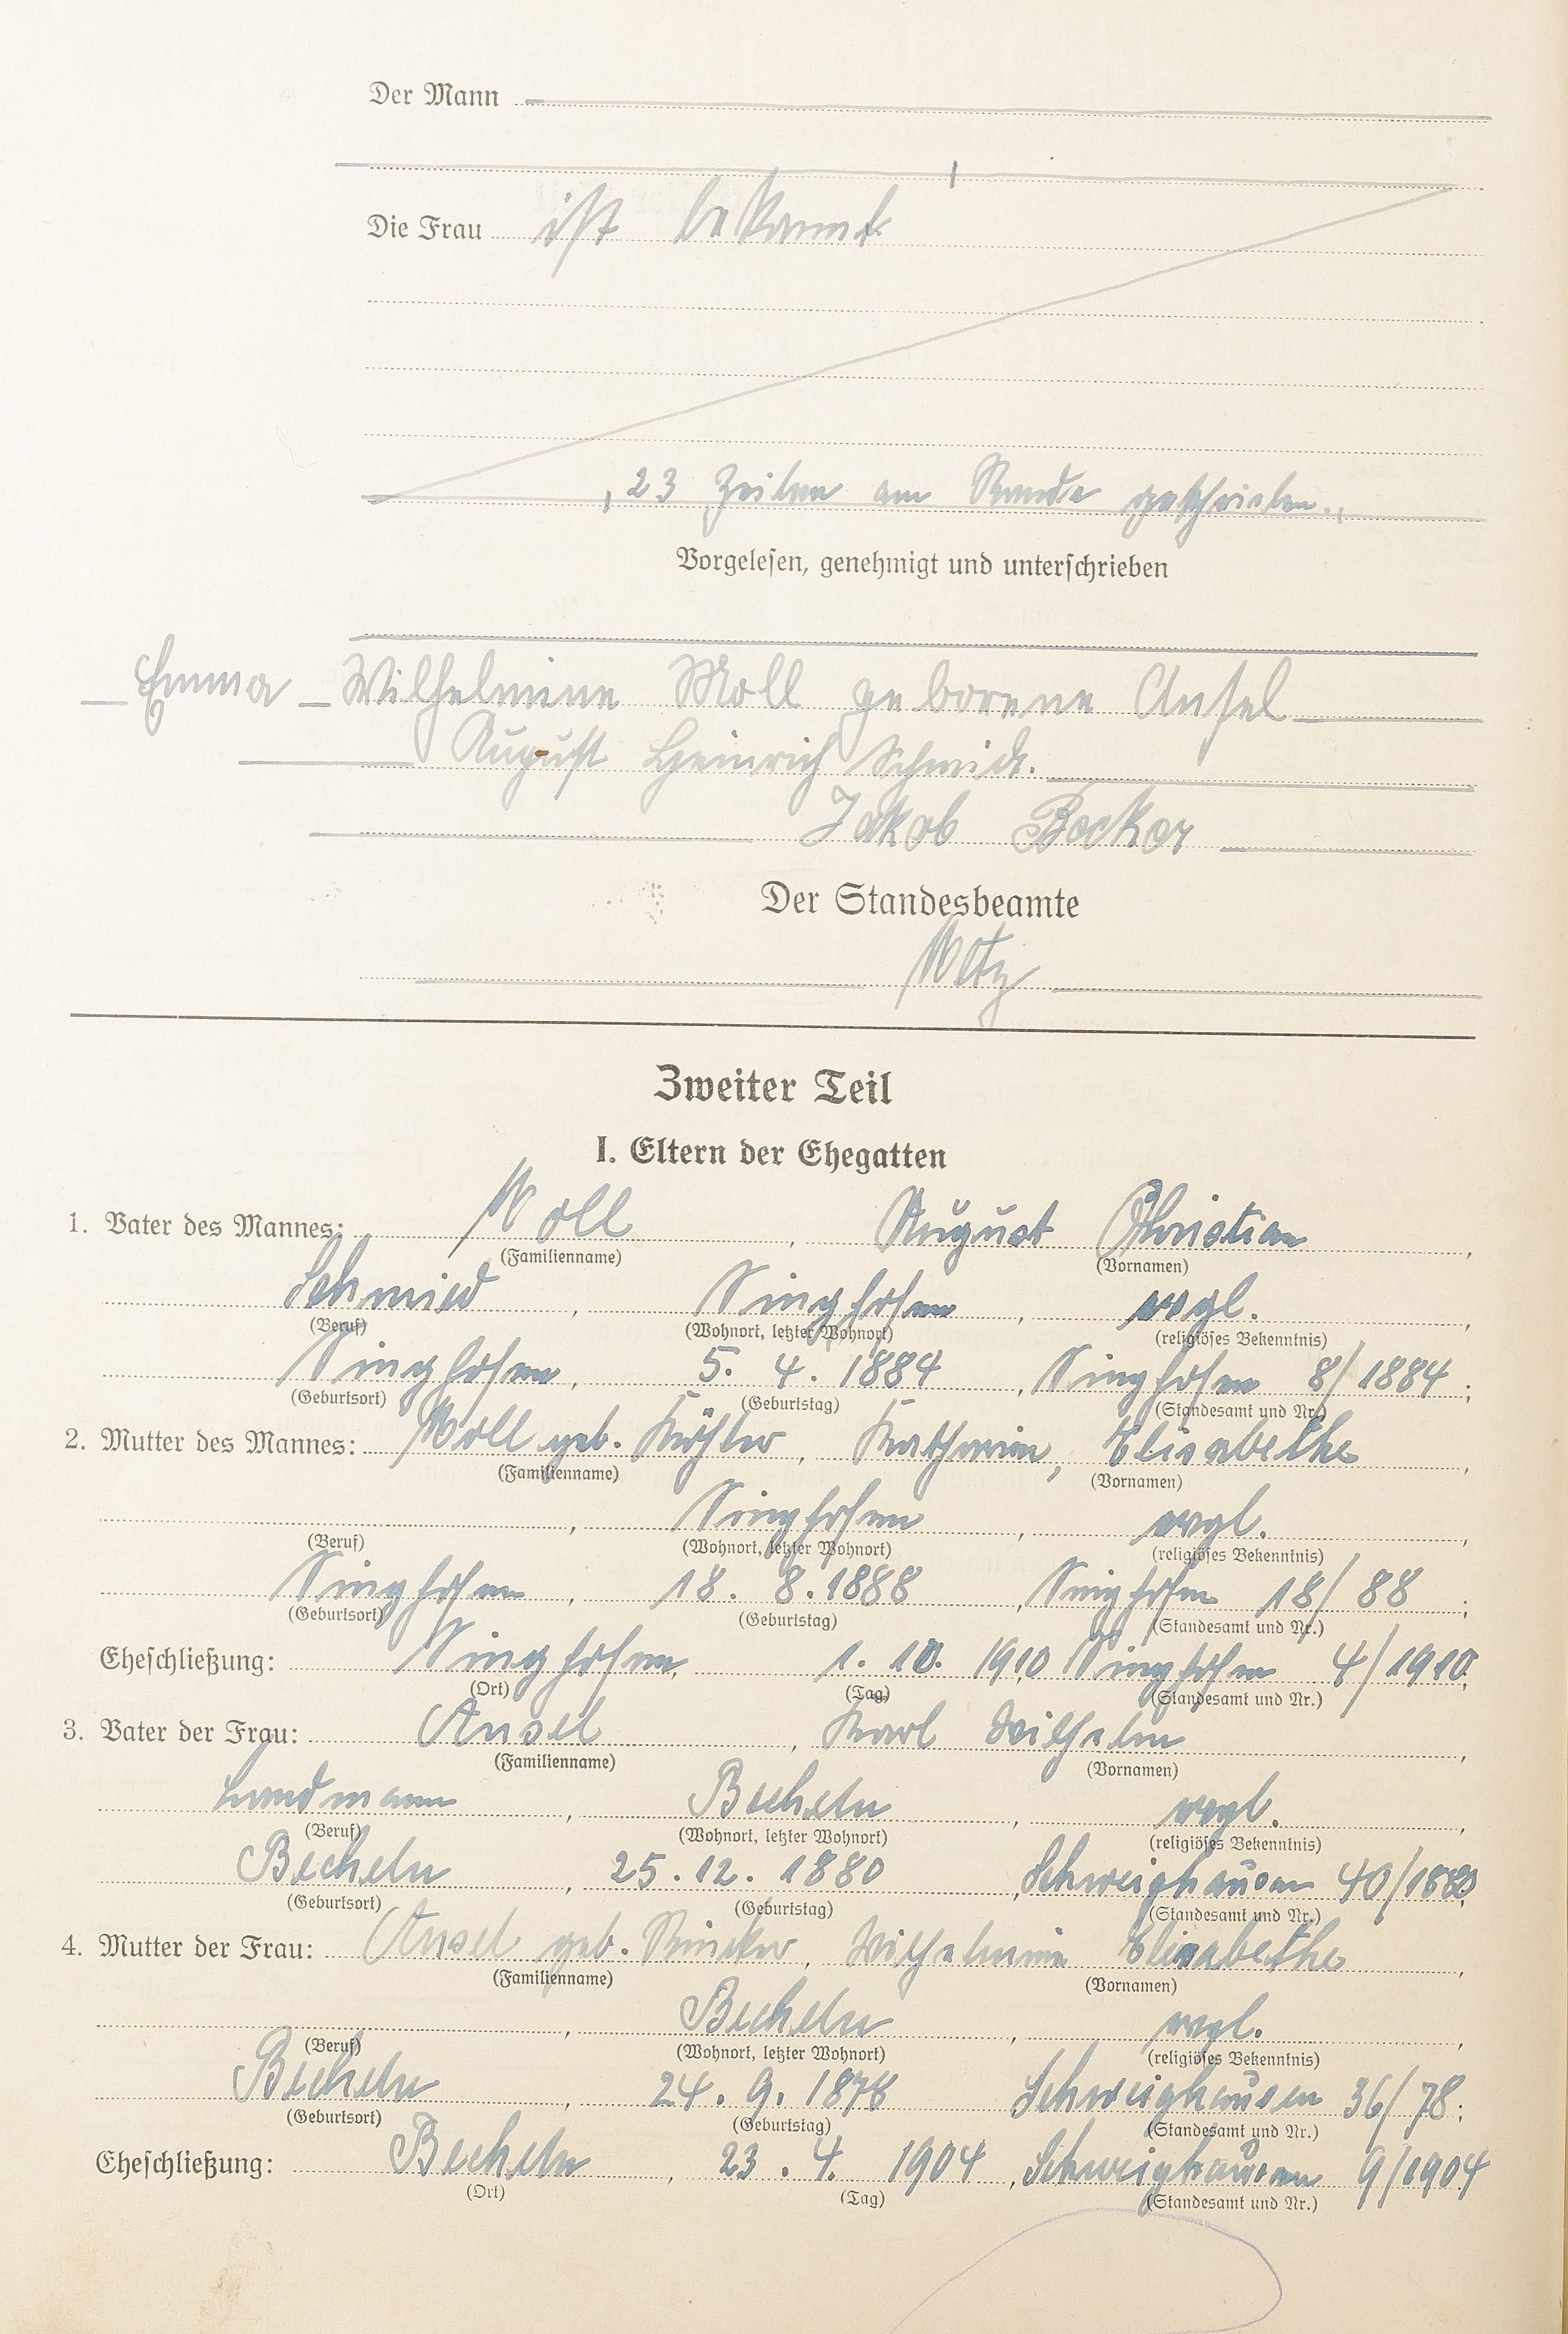 Der Mann
Die Frau ist bekannt
23 Zeilen am Rande geschrieben.
Vorgelesen, genehmigt und unterschrieben
Emma Wilhelmine Moll geborene Ansel
August Heinrich Schmidt.
Jakob Becker
Der Standesbeamte
Zweiter Teil
I. Eltern der Ehegatten
1. Vater des Mannes: Moll, August Christian,
(Familienname) (Vornamen)
Schmied, Singhofen, evgl.,
(Beruf) (Wohnort, letzter Wohnort) (religiöses Bekenntnis)
Singhofen, 5. 4. 1884, Singhofen 8/1884;
(Geburtsort) (Geburtstag) (Standesamt und Nr.)
2. Mutter des Mannes: Moll geb. Köhler, Katharine, Elisabethe,
(Familienname) (Vornamen)
, Singhofen, evgl.,
(Beruf) (Wohnort, letzter Wohnort) (religiöses Bekenntnis)
Singhofen, 18. 8. 1888, Singhofen 18/88;
(Geburtsort) (Geburtstag) (Standesamt und Nr.)
Eheschließung: Singhofen, 1. 10. 1910 Singhofen 4/1910.
(Ort) (Tag) (Standesamt und Nr.)
3. Vater der Frau: Ansel, Karl Wilhelm,
(Familienname) (Vornamen)
Landmann, Becheln, evgl.,
(Beruf) (Wohnort, letzter Wohnort) (religiöses Bekenntnis)
Becheln, 25. 12. 1880, Schweighausen 40/1880;
(Geburtsort) (Geburtstag) (Standesamt und Nr.)
4. Mutter der Frau: Ansel geb. , Wilhelmine Elisabethe,
(Familienname) (Vornamen)
, Becheln, evgl.,
(Beruf) (Wohnort, letzter Wohnort) (religiöses Bekenntnis)
Becheln, 24. 9. 1878 Schweighausen 36/78;
(Geburtsort) (Geburtstag) (Standesamt und Nr.)
Eheschließung: Becheln, 23. 4. 1904, Schweighausen 9/1904
(Ort) (Tag) (Standesamt und Nr.)